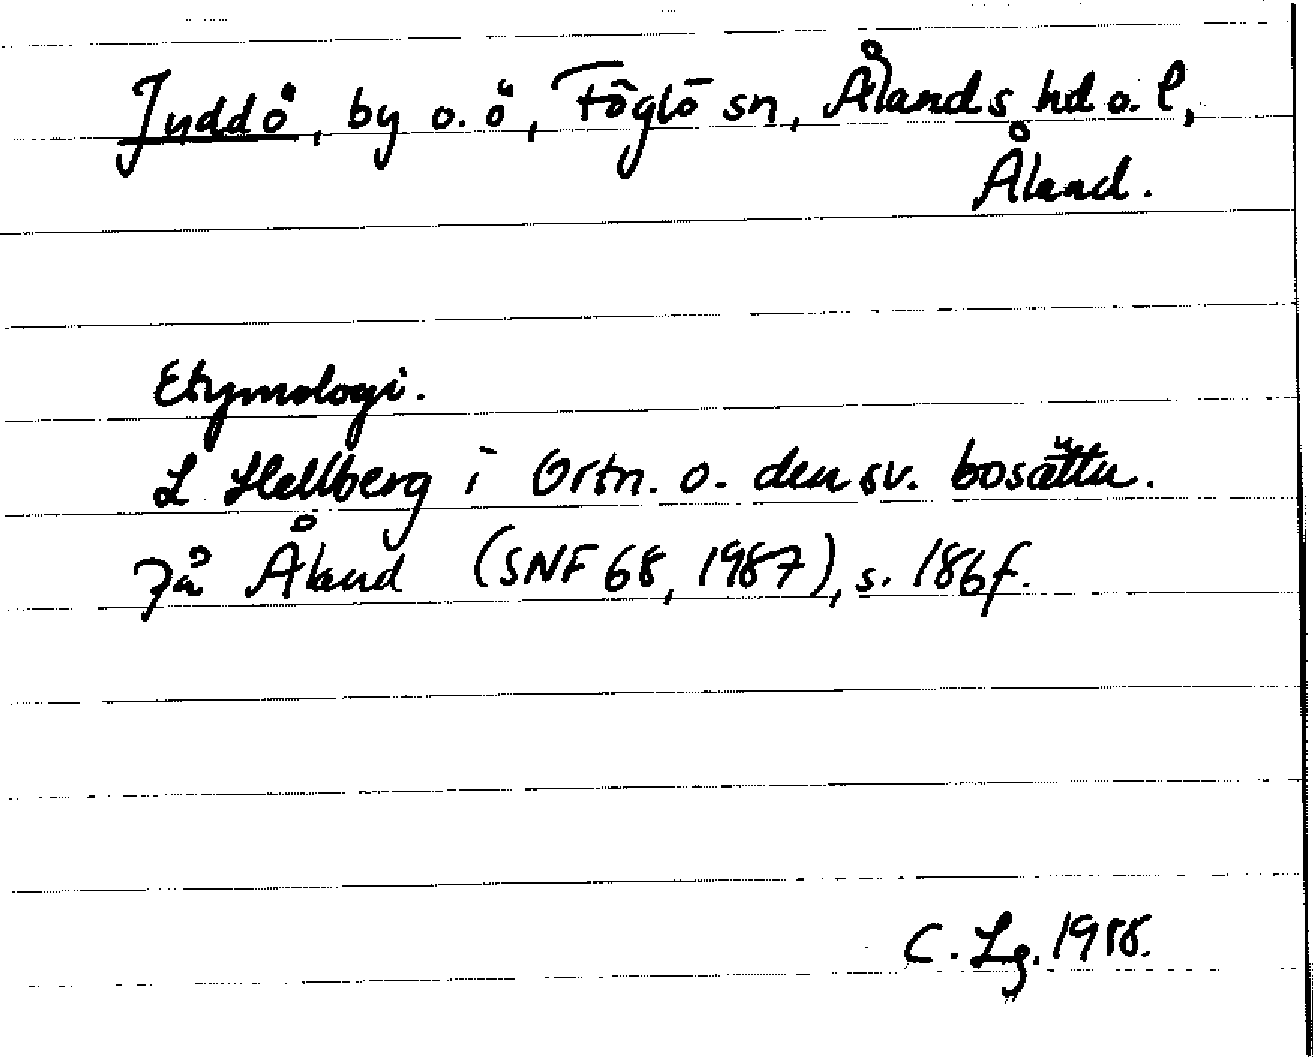 Jyddö, by o. ö, Föglö sn, Ålands hd o. l,
Åland.
Etymologi.
L Hellberg i Ortn. o. den sv. bosättn.
på Åland (SNF 68, 1987), s. 186f.
C. Lg. 1988.